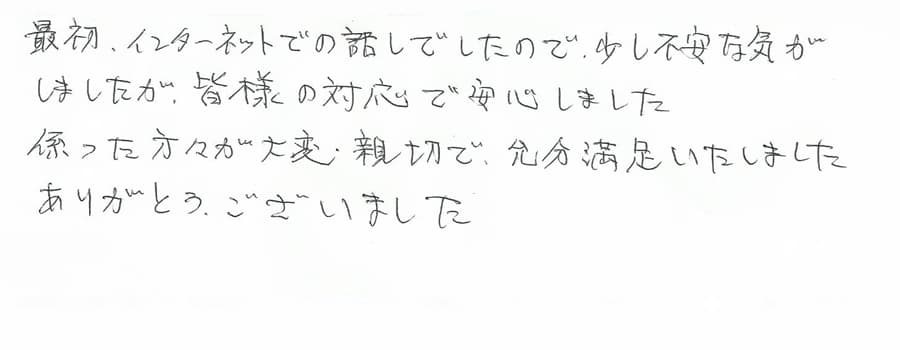 最初、インターネットでの話しでしたので、少し不安な気が
しましたが、皆様の対応で安心しました
係った方々が大変、親切で、充分満足いたしました
ありがとう、ございました